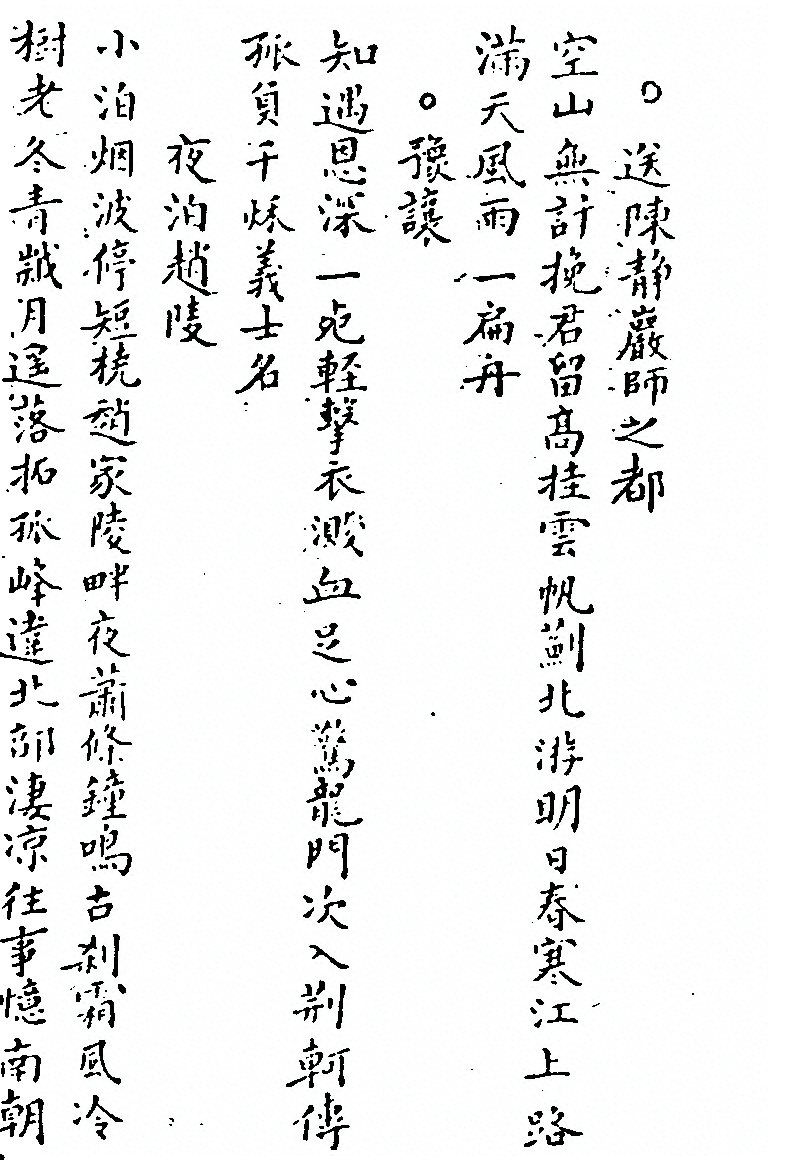 ○ 送陳静巖師之都
空山無計挽君留髙挂雲帆薊北游明日春寒江上路
滿天風雨一扁舟
○豫讓
知遇恩深一死輕擊衣濺血足心驚龍門次入荆軻傳
孤負千秌義士名
夜泊趙陵
小泊烟波停短橈趙家陵畔夜蕭條鐘鳴古刹霜風冷
樹老冬青月遥落拓孤峰違北部淒凉往事憶南朝